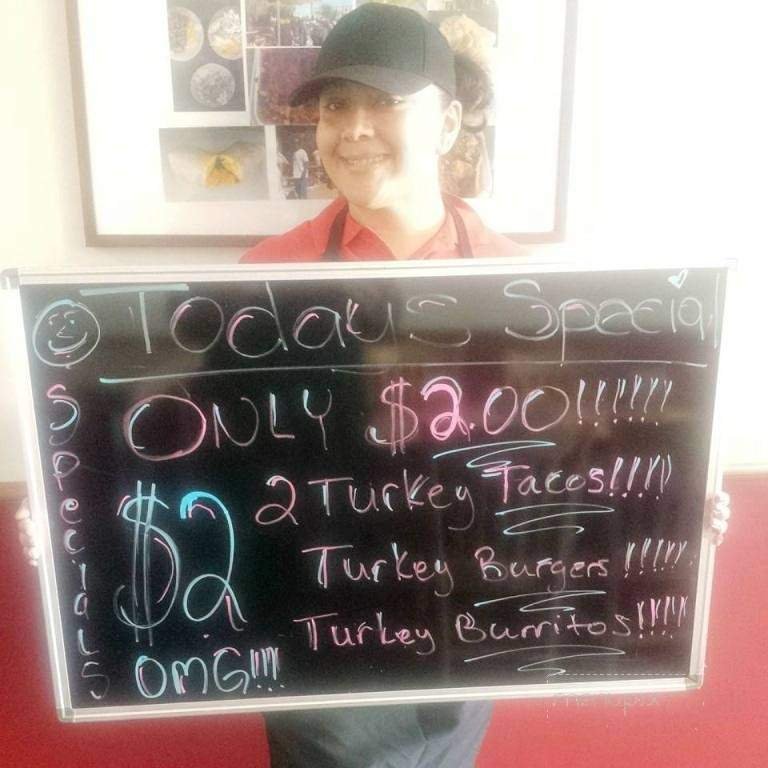 Todays Special
Specials
ONLY $2.00!!!!!!
$2
2 Turkey Tacos!!!!!
Turkey Burgers !!!!!
Turkey Burritos!!!!
OMG!!!!